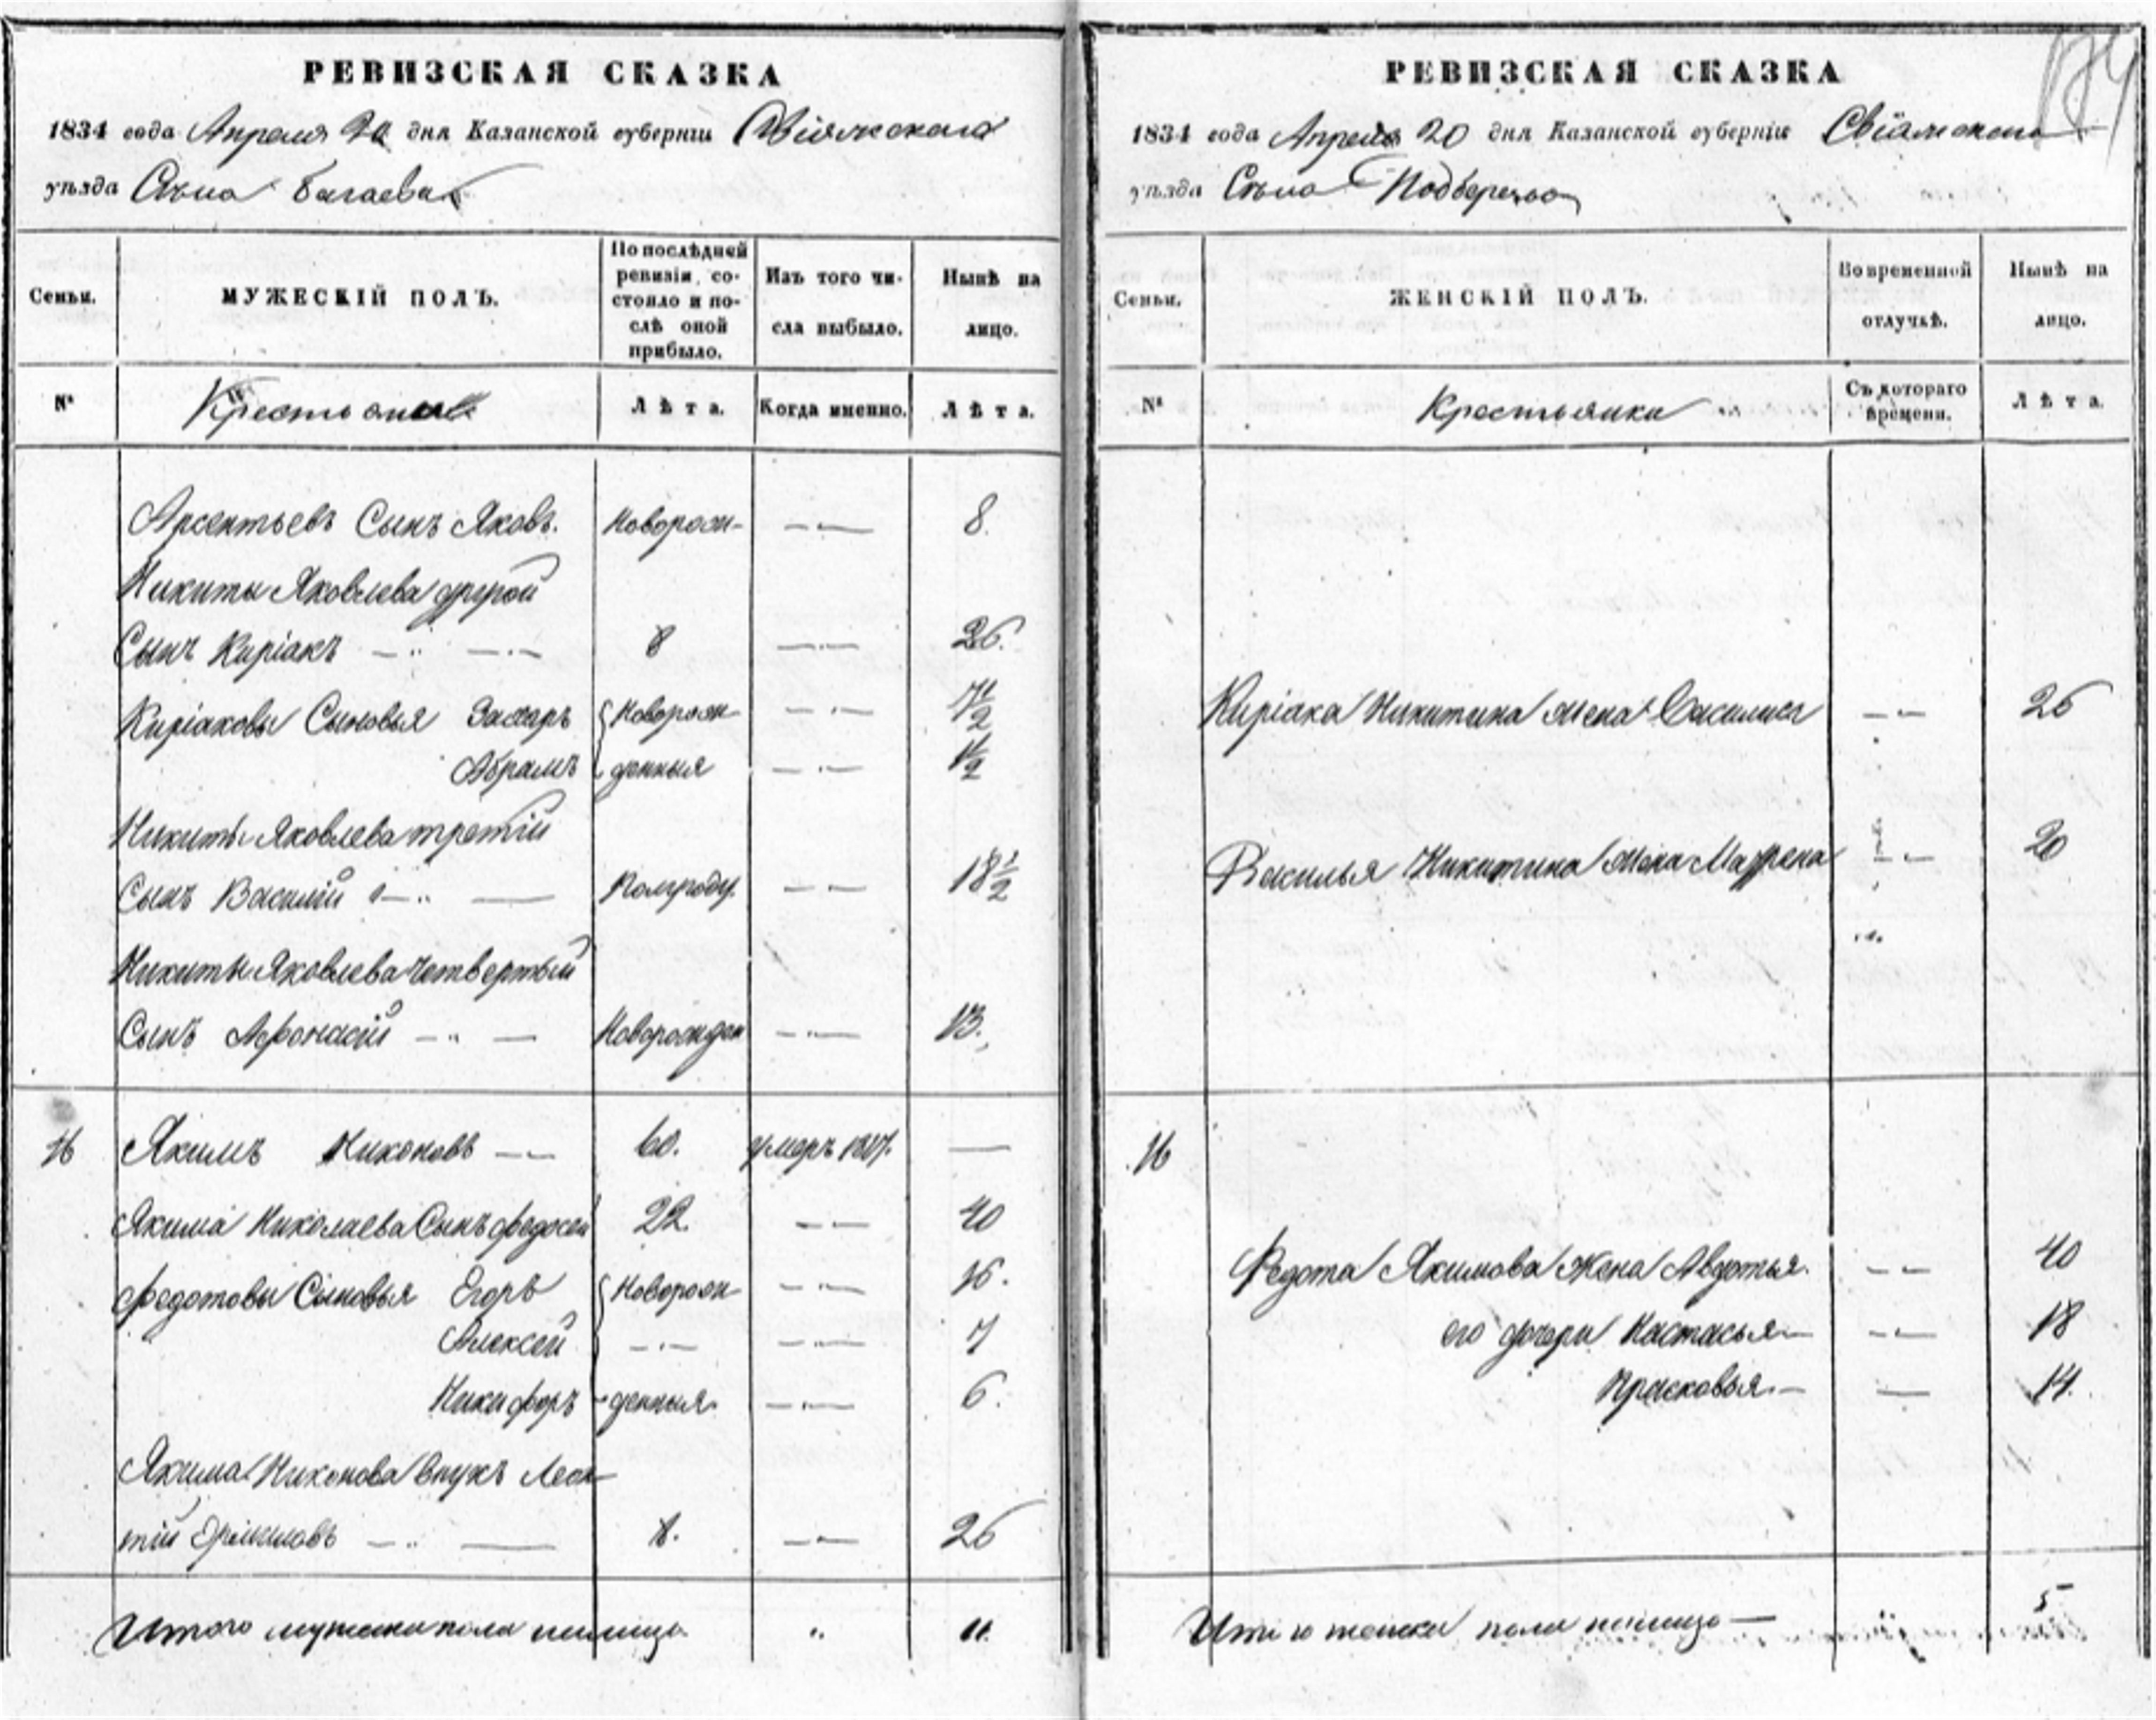 РЕВИЗСКАЯ СКАЗКА
1834 года Апреля 20 дня Казанской губерніи Свіяжскаго
уѣзда Сѣла Багаева
Семьи. МУЖЕСКІЙ ПОЛЪ. По послѣдней ревизіи, состояло и послѣ оной прибыло. Изъ того числа выбыло. Нынѣ на лицо.
№ Крестьяне Лѣта. Когда именно. Лѣта.
Арсентьевъ Сынъ Яковъ. Новорож- — 8.
Никиты Яковлева другой
Сынъ Киріакъ — — 8 — 26.
Киріаковы Сыновья Захаръ Новорож- — 7 1/2
Абрамъ денныя — 1/2
Никиты Яковлева третій
Сынъ Василій — — Полугоду. — 18 1/2
Никиты Яковлева четвертый
Сынъ Афонасій — — Новорожден — 13.
16 Якимъ Никоновъ — 60. умеръ 1827. —
Якима Николаева Сынъ федосей 22. — 40
федотовы Сыновья Егоръ Новорож- — 16.
Алексей — — 7
Никифоръ денныя — 6.
Якима Никонова внукъ Леон-
тій — — 8. — 26
Итого мужска пола налицо " 11.
РЕВИЗСКАЯ СКАЗКА
174
1834 года Апреля 20 дня Казанской губерніи Свіяжскаго
уѣзда Сѣла Подберезья
Семьи. ЖЕНСКІЙ ПОЛЪ. Во временной отлучкѣ. Нынѣ на лицо.
№ Крестьянки Съ котораго времени. Лѣта.
Киріака Никитина жена Василиса — 26
Василья Никитина жена Матрена — 20
16
Федота Якимова Жена Авдотья — 40
его дочери Настасья — — 18
Прасковья. — — 14.
Итого женска пола налицо — 5